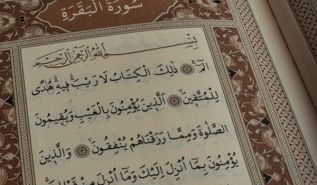 سُورَةُ الْبَقَرَةِ
بِسْمِ اللَّهِ الرَّحْمَٰنِ الرَّحِيمِ
الٓمٓ ۝ ذَٰلِكَ الْكِتَابُ لَا رَيْبَ فِيهِ هُدًى
لِّلْمُتَّقِينَ ۝ الَّذِينَ يُؤْمِنُونَ بِالْغَيْبِ وَيُقِيمُونَ
الصَّلَوٰةَ وَمِمَّا رَزَقْنَاهُمْ يُنفِقُونَ ۝ وَالَّذِينَ
يُؤْمِنُونَ بِمَا أُنزِلَ إِلَيْكَ وَمَا أُنزِلَ مِن قَبْلِكَ